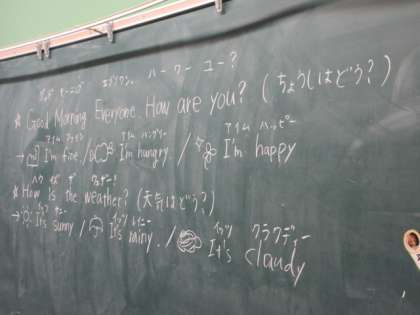 グッド モーニング エブリワン ハーワーユー?
* Good Morning Everyone. How are you? (ちょうしはどう?)
アイム ファイン アイム ハングリー アイム ハッピー
→ I'm fine. / I'm hungry. / I'm happy
ハウ イズ ザ ウェザー?
* How is the weather? (天気はどう?)
イッツ サニー イッツ レイニー イッツ クラウディー
→ It's sunny / It's rainy. / It's cloudy